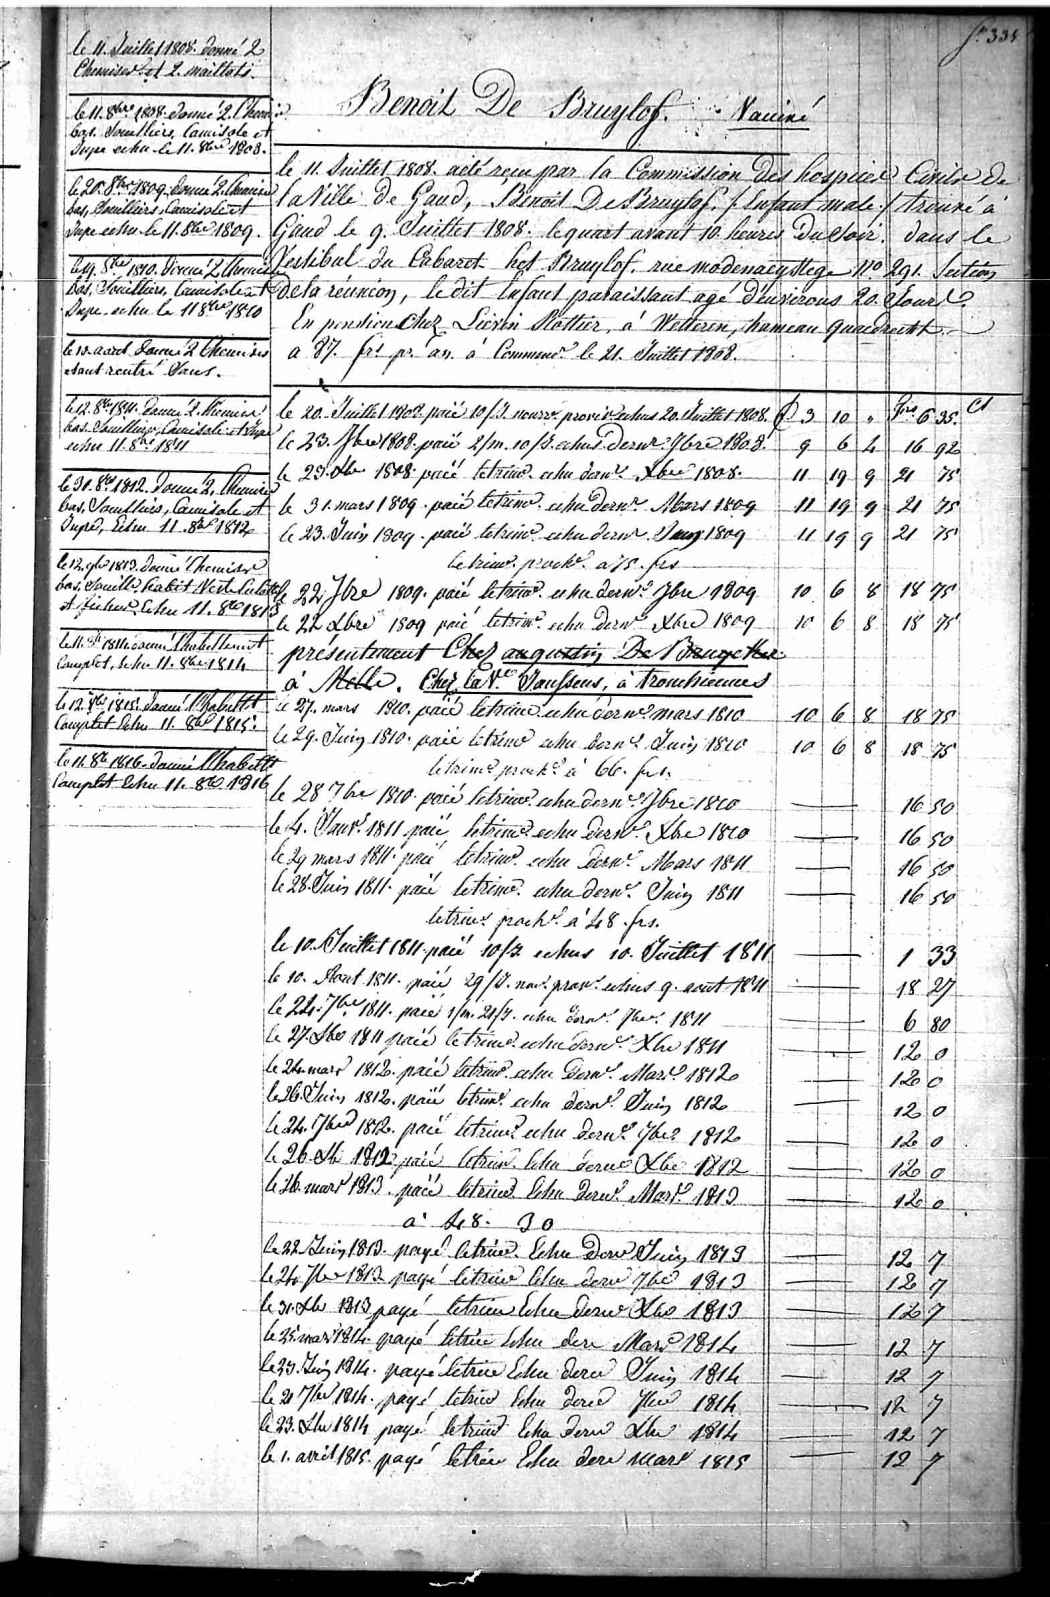 f° 335
le 11. Juillet 1808. donné 2
Chemises et 2. maillots.
le 11. 8bre 1808. donné 2 Chemis
bas. Souilliers, Camisole et
Jupe echu le 11. 8bre 1808.
le 20. 8bre 1809. donné 2 Chemises
bas, Souilliers, Camisole et
Jupe echu le 11. 8bre 1809.
le 19. 8bre 1810. donné 2 Chemises
bas, Souilliers, Camisole et
Jupe. echu le 11 8bre 1810
le 10. aout donné 2 Chemises
etant rentré sans.
le 12. 8bre 1811. donné 2. Chemises
bas. Souilliers, Camisole et Jupe
echu 11. 8bre 1811
le 31. 8bre 1812. donné 2, Chemises
bas. Souilliers, Camisole et
Jupe, Echu 11. 8bre 1812
le 12. 9bre 1813. donné Chemises
bas. Souill. habit Veste Culotte
et fichu. Echu 11. 8bre 1813
le 11. 8bre 1814. donné l'habillement
Complet, echu 11. 8bre 1814
le 12. 8bre 1815. donné l'habillet
Complet Echu 11. 8bre 1815.
le 11. 8bre 1816. donné l'habillt
Complet Echu 11. 8bre 1816
Benoit De Bruylof. Vacciné
le 11. Juillet 1808. a été reçu par la Commission des hospices Civils de
la Ville de Gand, Benoit De Bruylof. / Enfant male / trouvé à
Gand le 9. Juillet 1808. le quart avant 10. heures du Soir. dans le
Vestibul du Cabaret het Bruylof. rue modenaeysttege No 291. Section
de la réunion, le dit Enfant paraissant agé d'environs 20. Jours
En pension Chez Lievin Rottier, à Wetteren, hameau quaedrecht
a 87. frs pr an. à Commenr le 21. Juillet 1808.
le 20. Juillet 1808. paié 10/J. nourre. provire echus 20. Juillet 1808. 3 10 " frs 6 35. Ct
le 23. 7bre 1808. paié 2/m. 10/J. echus dernr. 7bre 1808. 9 6 4 16 92
le 23. Xbre 1808. paié letrimr. echu dernr. Xbre 1808. 11 19 9 21 75
le 31. mars 1809. paié letrimr. echu dernr. Mars 1809 11 19 9 21 75
le 23. Juin 1809. paié letrimr. echu dernr. Juin 1809 11 19 9 21 75
letrimr. prochr. a 75. frs
le 22 7bre 1809. paié letrimr. echu dernr. 7bre 1809 10 6 8 18 75
le 22 Xbre 1809 paié letrimr. echu dernr. Xbre 1809 10 6 8 18 75
presentement Chez augustin De Bruycker
à Melle. Chez la Ve. Janssens, à tronchiennes
le 27. mars 1810. paié letrimr. echu dernr. mars 1810 10 6 8 18 75
le 29. Juin 1810. paié letrimr. echu dernr. Juin 1810 10 6 8 18 75
letrimr. prochr. à 66. frs.
le 28 7bre 1810. paié letrimr. echu dernr. 7bre 1810 16 50
le 4. Janvr. 1811 paié letrimr. echu dernr. Xbre 1810 16 50
le 29 mars 1811. paié letrimr. echu dernr. Mars 1811 16 50
le 28. Juin 1811. paié letrimr. echu dernr. Juin 1811 16 50
letrimr. prochr. a 48. frs.
le 10. Juillet 1811. paié 10/J. echus 10. Juillet 1811 1 33
le 10. Aout 1811. paié 29/J. nour. provr. echus 9. aout 1811 18 27
le 24. 7bre 1811. paié 1/m. 21/J. echu dernr. 7bre. 1811 6 80
le 27. Xbre 1811 paié letrimr. echu dernr. Xbre 1811 12 0
le 24. mars 1812. paié letrimr. echu dernr. Mars. 1812 12 0
le 26. Juin 1812. paié letrimr. echu dernr. Juin 1812 12 0
le 24. 7bre 1812. paié letrimr. echu dernr. 7bre 1812 12 0
le 26. Xb 1812 paié letrimr. Echu dernr Xbre 1812 12 0
le 26. mars 1813. paié letrimr. Echu dernr. Mars. 1813 12 0
a' 48. 30
le 22. Juin 1813. payé letrimr. Echu dernr Juin 1813 12 7
le 24. 7bre 1813 payé letrimr Echu dernr 7bre 1813 12 7
le 31. Xbre 1813 payé letrimr Echu dernr Xbre 1813 12 7
le 25 mars 1814. payé letrimr Echu derr Mars 1814 12 7
le 23. Juin 1814. payé letrimr Echu derr Juin 1814 12 7
le 21 7bre 1814. payé letrimr Echu derr 7bre 1814 12 7
le 23. Xbre 1814 payé letrimr Echu derr Xbre 1814 12 7
le 1. avril 1815. payé letrimr Echu derr mars 1815 12 7